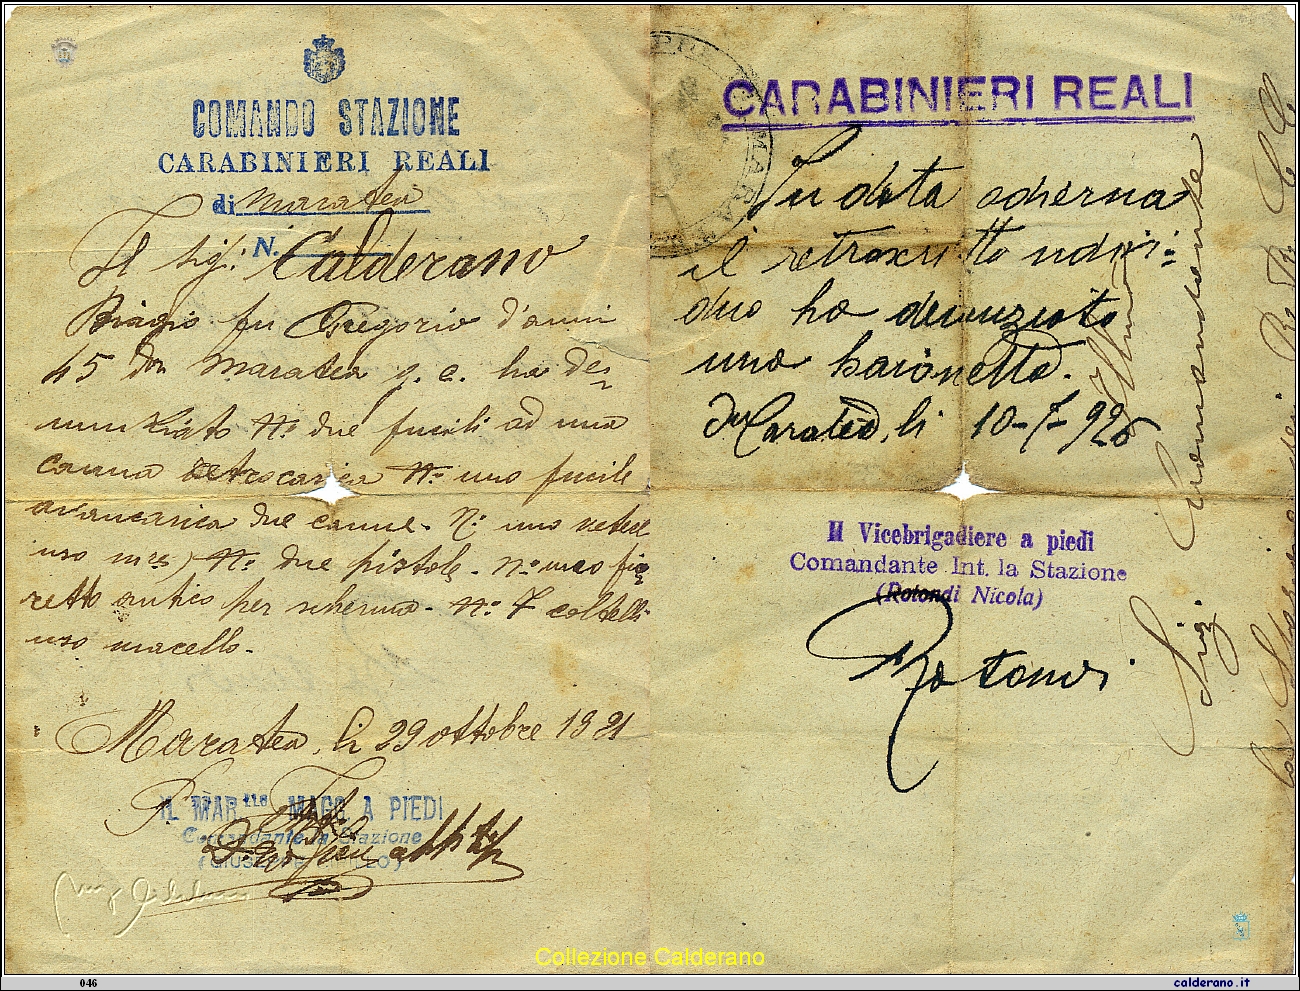 COMANDO STAZIONE
CARABINIERI REALI
di Maratea
N.
Il sig. Calderano
Biagio fu Gregorio d'anni
45 da Maratea ha de-
nunziato N° due fucili ad una
canna retrocarica N° uno fucile
avancarica due canne. N° uno
uso N° due pistole. N° uno fio-
retto antico per scherma. N° 7 coltelli
uso macello.
Maratea, li 29 ottobre 1921
IL MAR.llo MAGG. A PIEDI
Comandante la Stazione
CARABINIERI REALI
In data odierna
il retroscritto indivi-
duo ha denunziato
una baionetta.
Maratea, li 10-7-926
Il Vicebrigadiere a piedi
Comandante Int. la Stazione
(Rotondi Nicola)
Rotondi
Comandante
Collezione Calderano
046
calderano.it